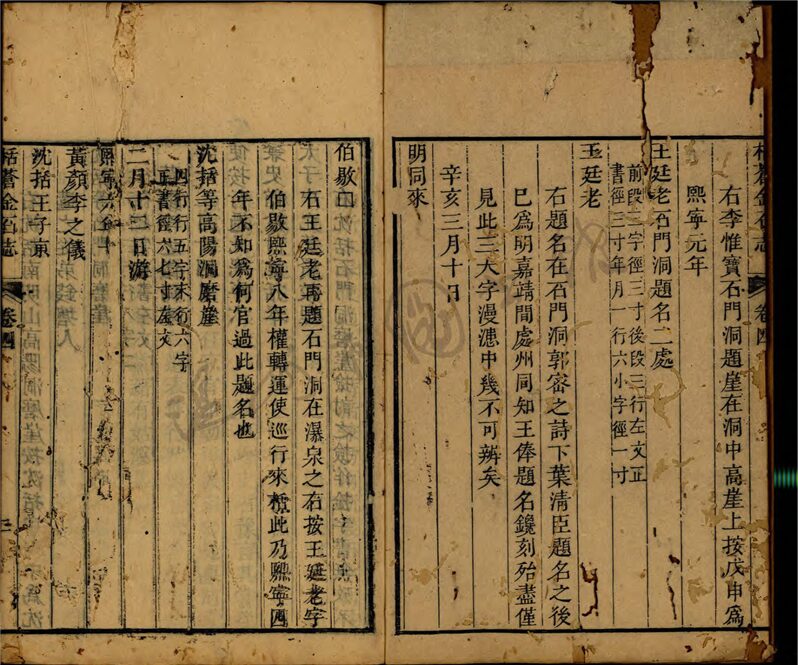 右李惟寶石門洞題崖在洞中高崖上按戊申爲
熙寧元年
王廷老石門洞題名二處
前段三字徑三寸後段三行左文正
書徑三寸年月一行六小字徑一寸
王廷老
右題名在石門洞郭密之詩下葉清臣題名之後
已爲明嘉靖間處州同知王俸題名鑱刻殆盡僅
見此三大字漫漶中幾不可辨矣
辛亥三月十日
明同來
伯敭口
右王廷老再題石門洞在瀑泉之右按王廷老字
伯敭熙寧八年權轉運使巡行來栝此乃熙寧四
年不如爲何官過此題名也
沈括等高陽洞磨崖
四行行五字末行六字
正書徑六七寸左文
二月十三日游
熙寧六年
黃顏李之儀
沈括王子京
栝蒼金石志
卷四
栝蒼金石志
卷四